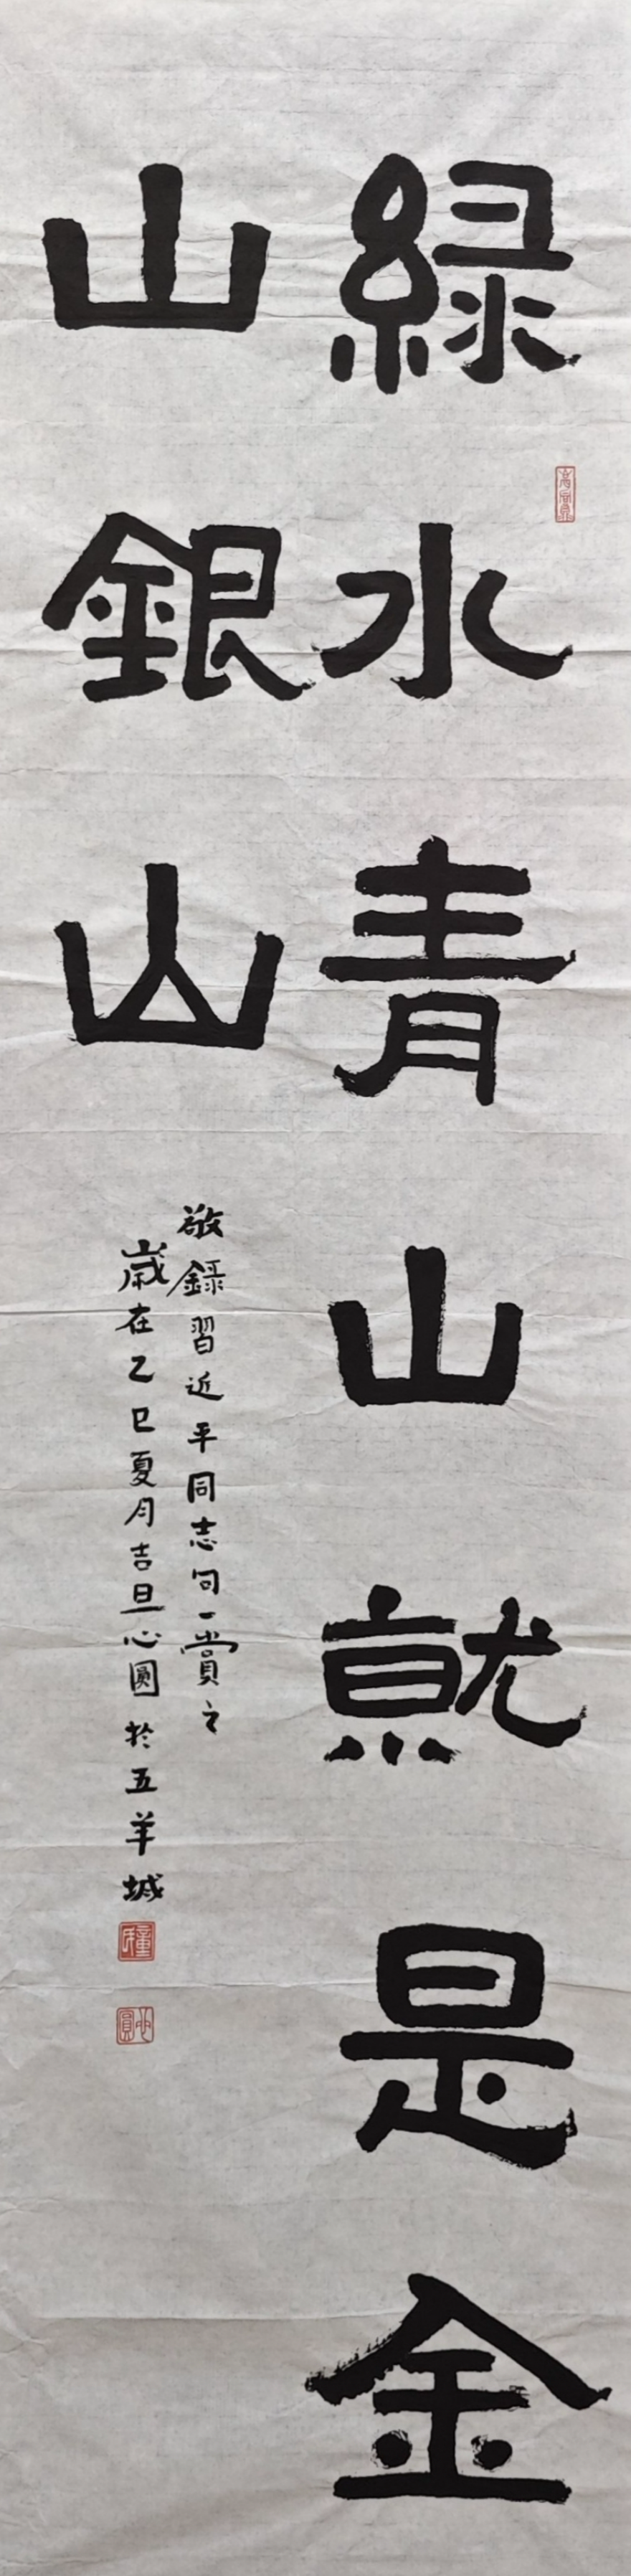 綠水青山就是金
山銀山
敬錄習近平同志句一賞之
歲在乙巳夏月吉旦心圓於五羊城